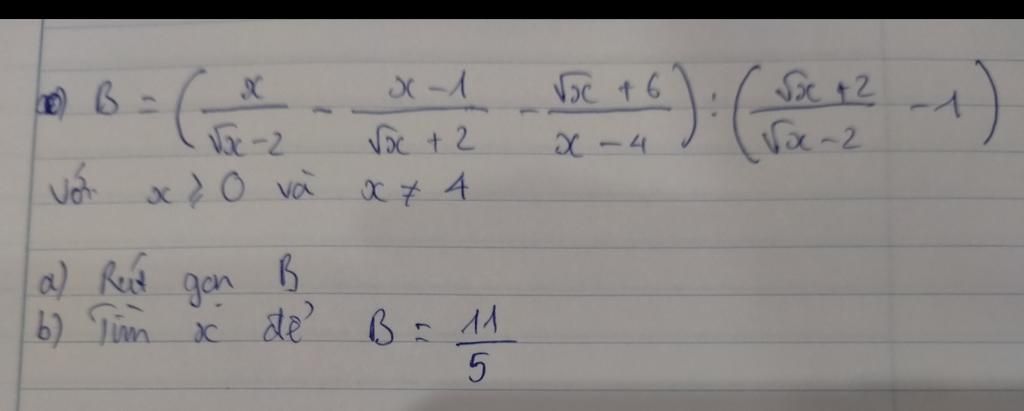 B = (x/(√x-2) - (x-1)/(√x+2) - (√x+6)/(x-4)) : ((√x+2)/(√x-2) - 1)
với x ⩾ 0 và x ≠ 4
a) Rút gọn B
b) Tìm x để B = 11/5